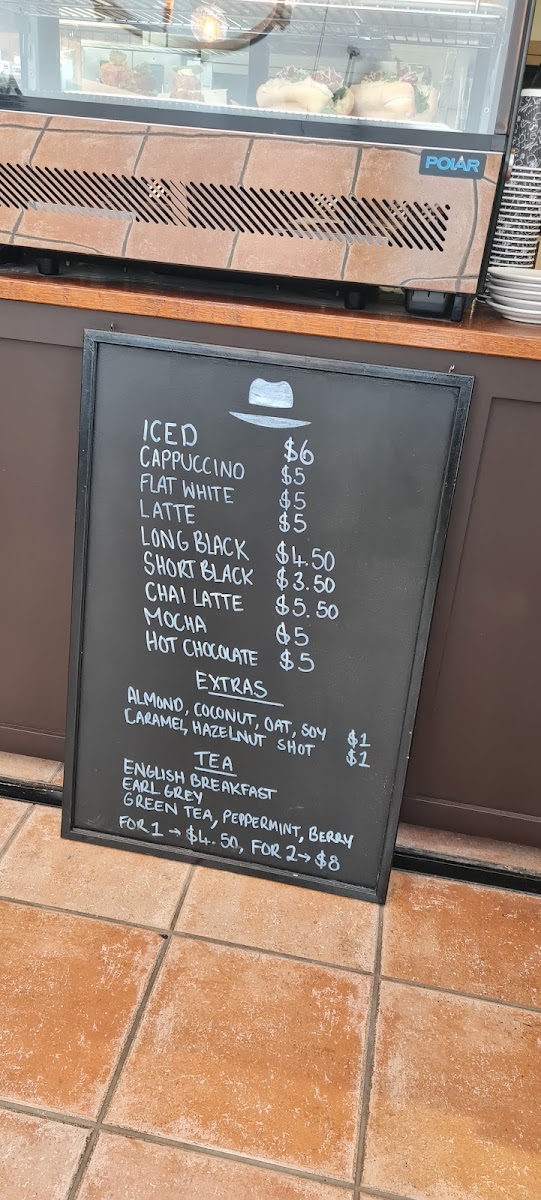 POLAR
ICED $6
CAPPUCCINO $5
FLAT WHITE $5
LATTE $5
LONG BLACK $4.50
SHORT BLACK $3.50
CHAI LATTE $5.50
MOCHA $5
HOT CHOCOLATE $5
EXTRAS
ALMOND, COCONUT, OAT, SOY $1
CARAMEL, HAZELNUT SHOT $1
TEA
ENGLISH BREAKFAST
EARL GREY
GREEN TEA, PEPPERMINT, BERRY
FOR 1 → $4.50, FOR 2 → $8